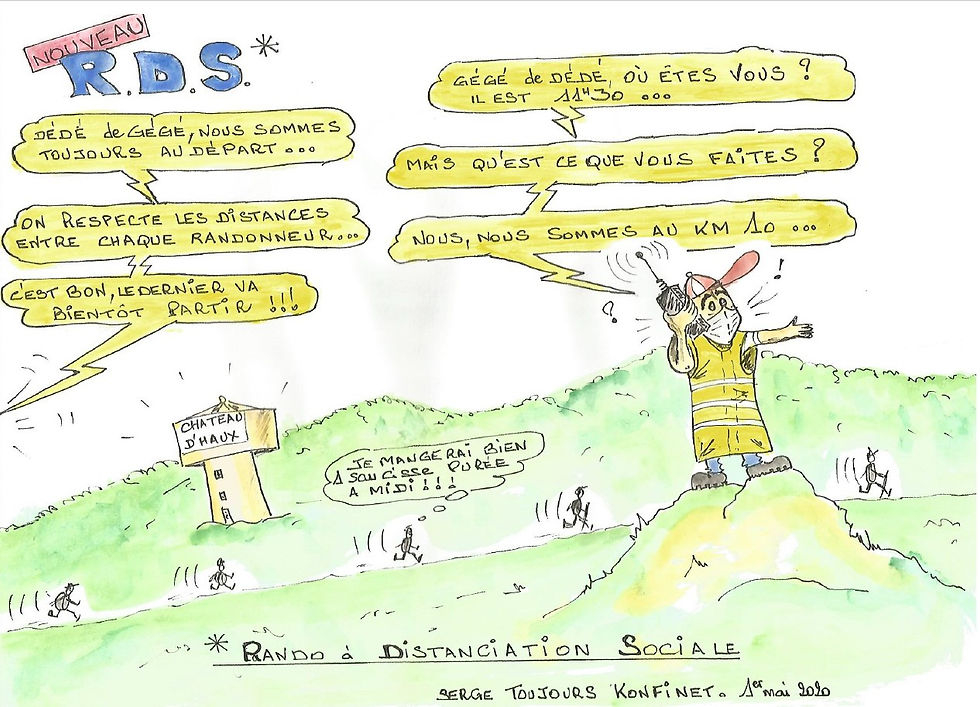 NOUVEAU
R.D.S.*
GÉGÉ de DÉDÉ, OÙ ÊTES VOUS ?
IL EST 11H30 ...
MAIS QU'EST CE QUE VOUS FAITES ?
NOUS, NOUS SOMMES AU KM 10 ...
DÉDÉ de GÉGÉ, NOUS SOMMES
TOUJOURS AU DÉPART ...
ON RESPECTE LES DISTANCES
ENTRE CHAQUE RANDONNEUR...
C'EST BON, LE DERNIER VA
BIENTÔT PARTIR !!!
? !
CHATEAU
D'HAUX
JE MANGERAI BIEN
1 SAUCISSE PURÉE
A MIDI !!!
* RANDO à DISTANCIATION SOCIALE
SERGE TOUJOURS KONFINET. 1er mai 2020